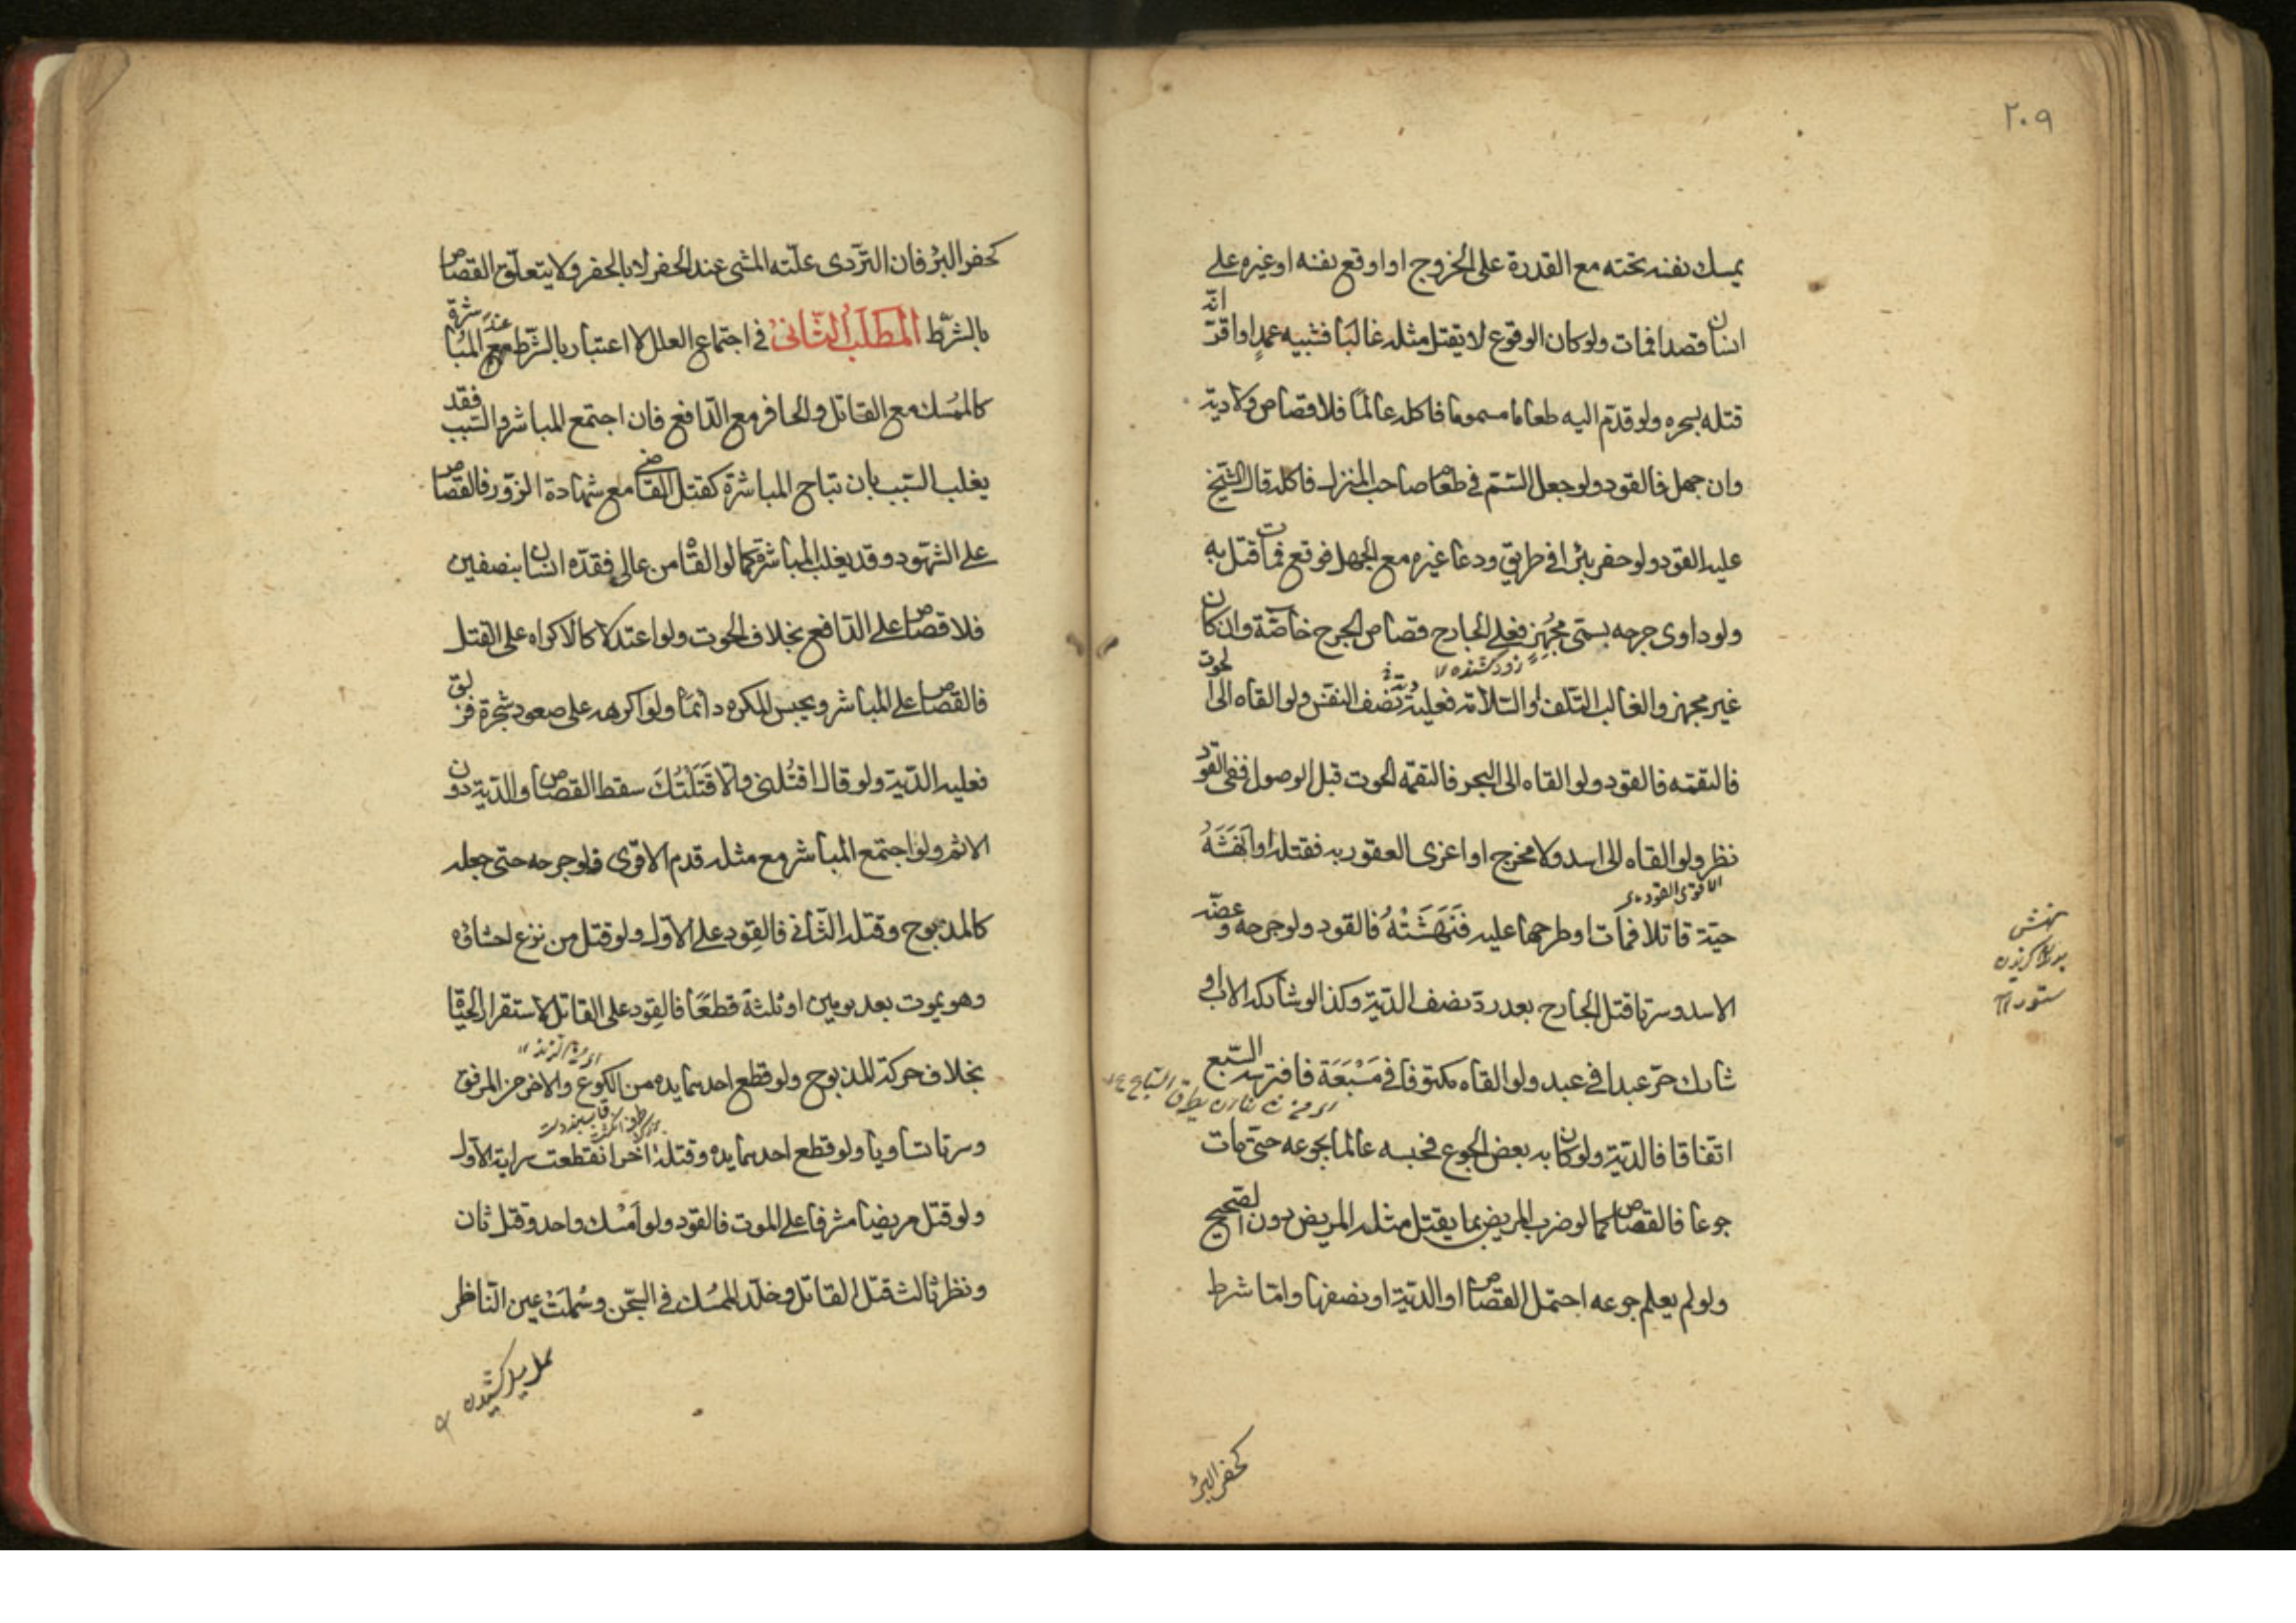 ٢٠٩
يمسك نفسه تحته مع القدرة على الخروج او اوقع نفسه او غيره على
انسان قصدا فمات ولو كان الوقوع لا يقتل مثله غالبا فشبيه عمد او اقرّ انّه
قتله بسحره ولو قدّم اليه طعاما مسموما فاكله عالمًا فلا قصاص ولا دية
وان جهل فالقود ولو جعل السّمّ في طعام صاحب المنزل فاكله قال الشيخ
عليه القود ولو حفر بئرا في طريق ودعا غيره مع الجهل فوقع فمات قتل به
ولو داوى جرحه بسمّ مجُهِزٍ فعلى الجارح قصاص الجرح خاصّة وان كان
زود كشنده
غير مجهز والغالب التلف او السّلامة فعليه دية نصف النفس ولو القاه الى الحوت
فالتقمته فالقود ولو القاه الى البحر فالتقمه الحوت قبل الوصول ففى القود
نظر ولو القاه الى اسد ولا مخرج او اغرى العقور به فقتله او انهَشَهُ
الاقوى القود
حيّة قاتلا فمات او طرحها عليه فَنَهَشَتْهُ فالقود ولو جرحه وعضّه
الاسد وسرتا قتل الجارح بعد ردّ نصف الدّية وكذا لو شاركه الاب او
شارك حرّ عبدا في عبد ولو القاه مكتوفا في مَسْبَعَة فافترسه السّبع
اتفاقا فالدّية ولو كان به بعض الجوع فحبسه عالما بجوعه حتّى مات
جوعا فالقصاص كما لو ضرب المريض بما يقتل مثله المريض دون الصّحيح
ولو لم يعلم جوعه احتمل القصاص او الدّية او نصفها وامّا شرط
كحفر البئر
نهش
ستور
كحفر البئر فان التردّى علّته المشى عند الحفر لا بالحفر ولا يتعلّق القصاص
بالشّرط المَطلَبُ الثّانى في اجتماع العلل لا اعتبار بالشّرط مع المباشرة
عند
كالممُسك مع القاتل والحافر مع الدّافع فان اجتمع المباشر والسّبب فقد
يغلب السّبب بان تباح المباشرة كقتل القاضي مع شهادة الزّور فالقصاص
على الشّهود وقد يغلب المباشرة كما لو القاه من عالٍ فقدّه انسان بنصفين
فلا قصاص على الدّافع بخلاف الحوت ولو اعتدلا كالاكراه على القتل
فالقصاص على المباشر ويحبس المكره دائمًا ولو اكرهه على صعود شجرة فزلق
فعليه الدّية ولو قال اقتُلنى والّا قَتَلتُكَ سقط القصاص والدّية دون
الاثم ولو اجتمع المباشر مع مثله قدم الاقوى فلو جرحه حتى جعله
كالمذبوح وقتله الثّانى فالقود على الاوّل ولو قتل من نزع احشاؤه
وهو يموت بعد يومين او ثلثة قطعًا فالقود على القاتل لاستقرار الحيوة
بخلاف حركة المذبوح ولو قطع احدهما يده من الكوع والاخر من المرفق
وسرتا تساويا ولو قطع احدهما يده وقتله اخر انقطعت سراية الاوّل
ولو قتل مريضا مشرفا على الموت فالقود ولو اَمْسك واحد وقتل ثان
ونظر ثالث قتل القاتل وخلّد الممسك في السّجن وسُمِلَتْ عين النّاظر
سمل ميل كشيدن